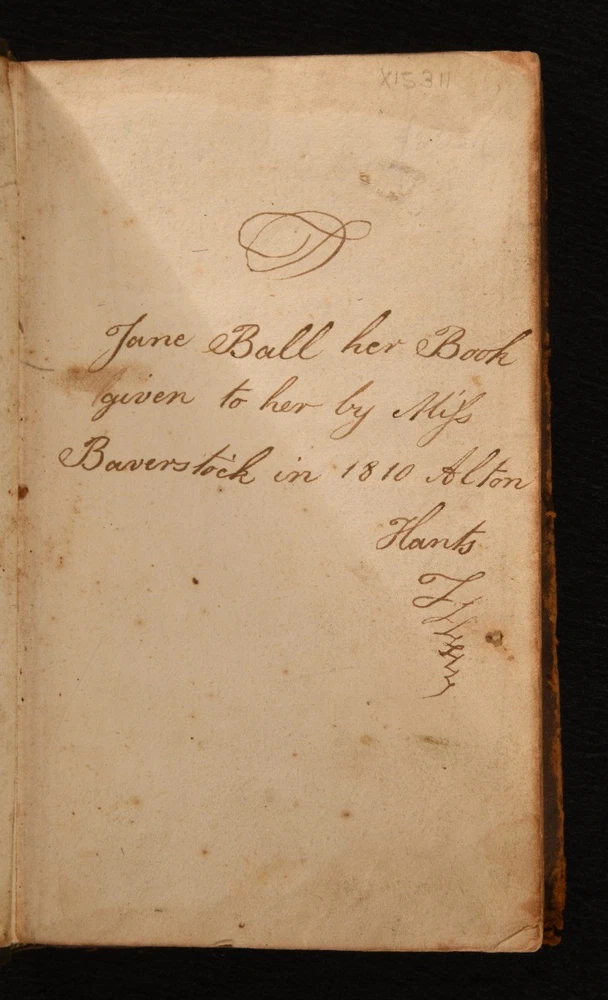 X15311
Jane Ball her Book
given to her by Miſs
Baverstock in 1810 Alton
Hants